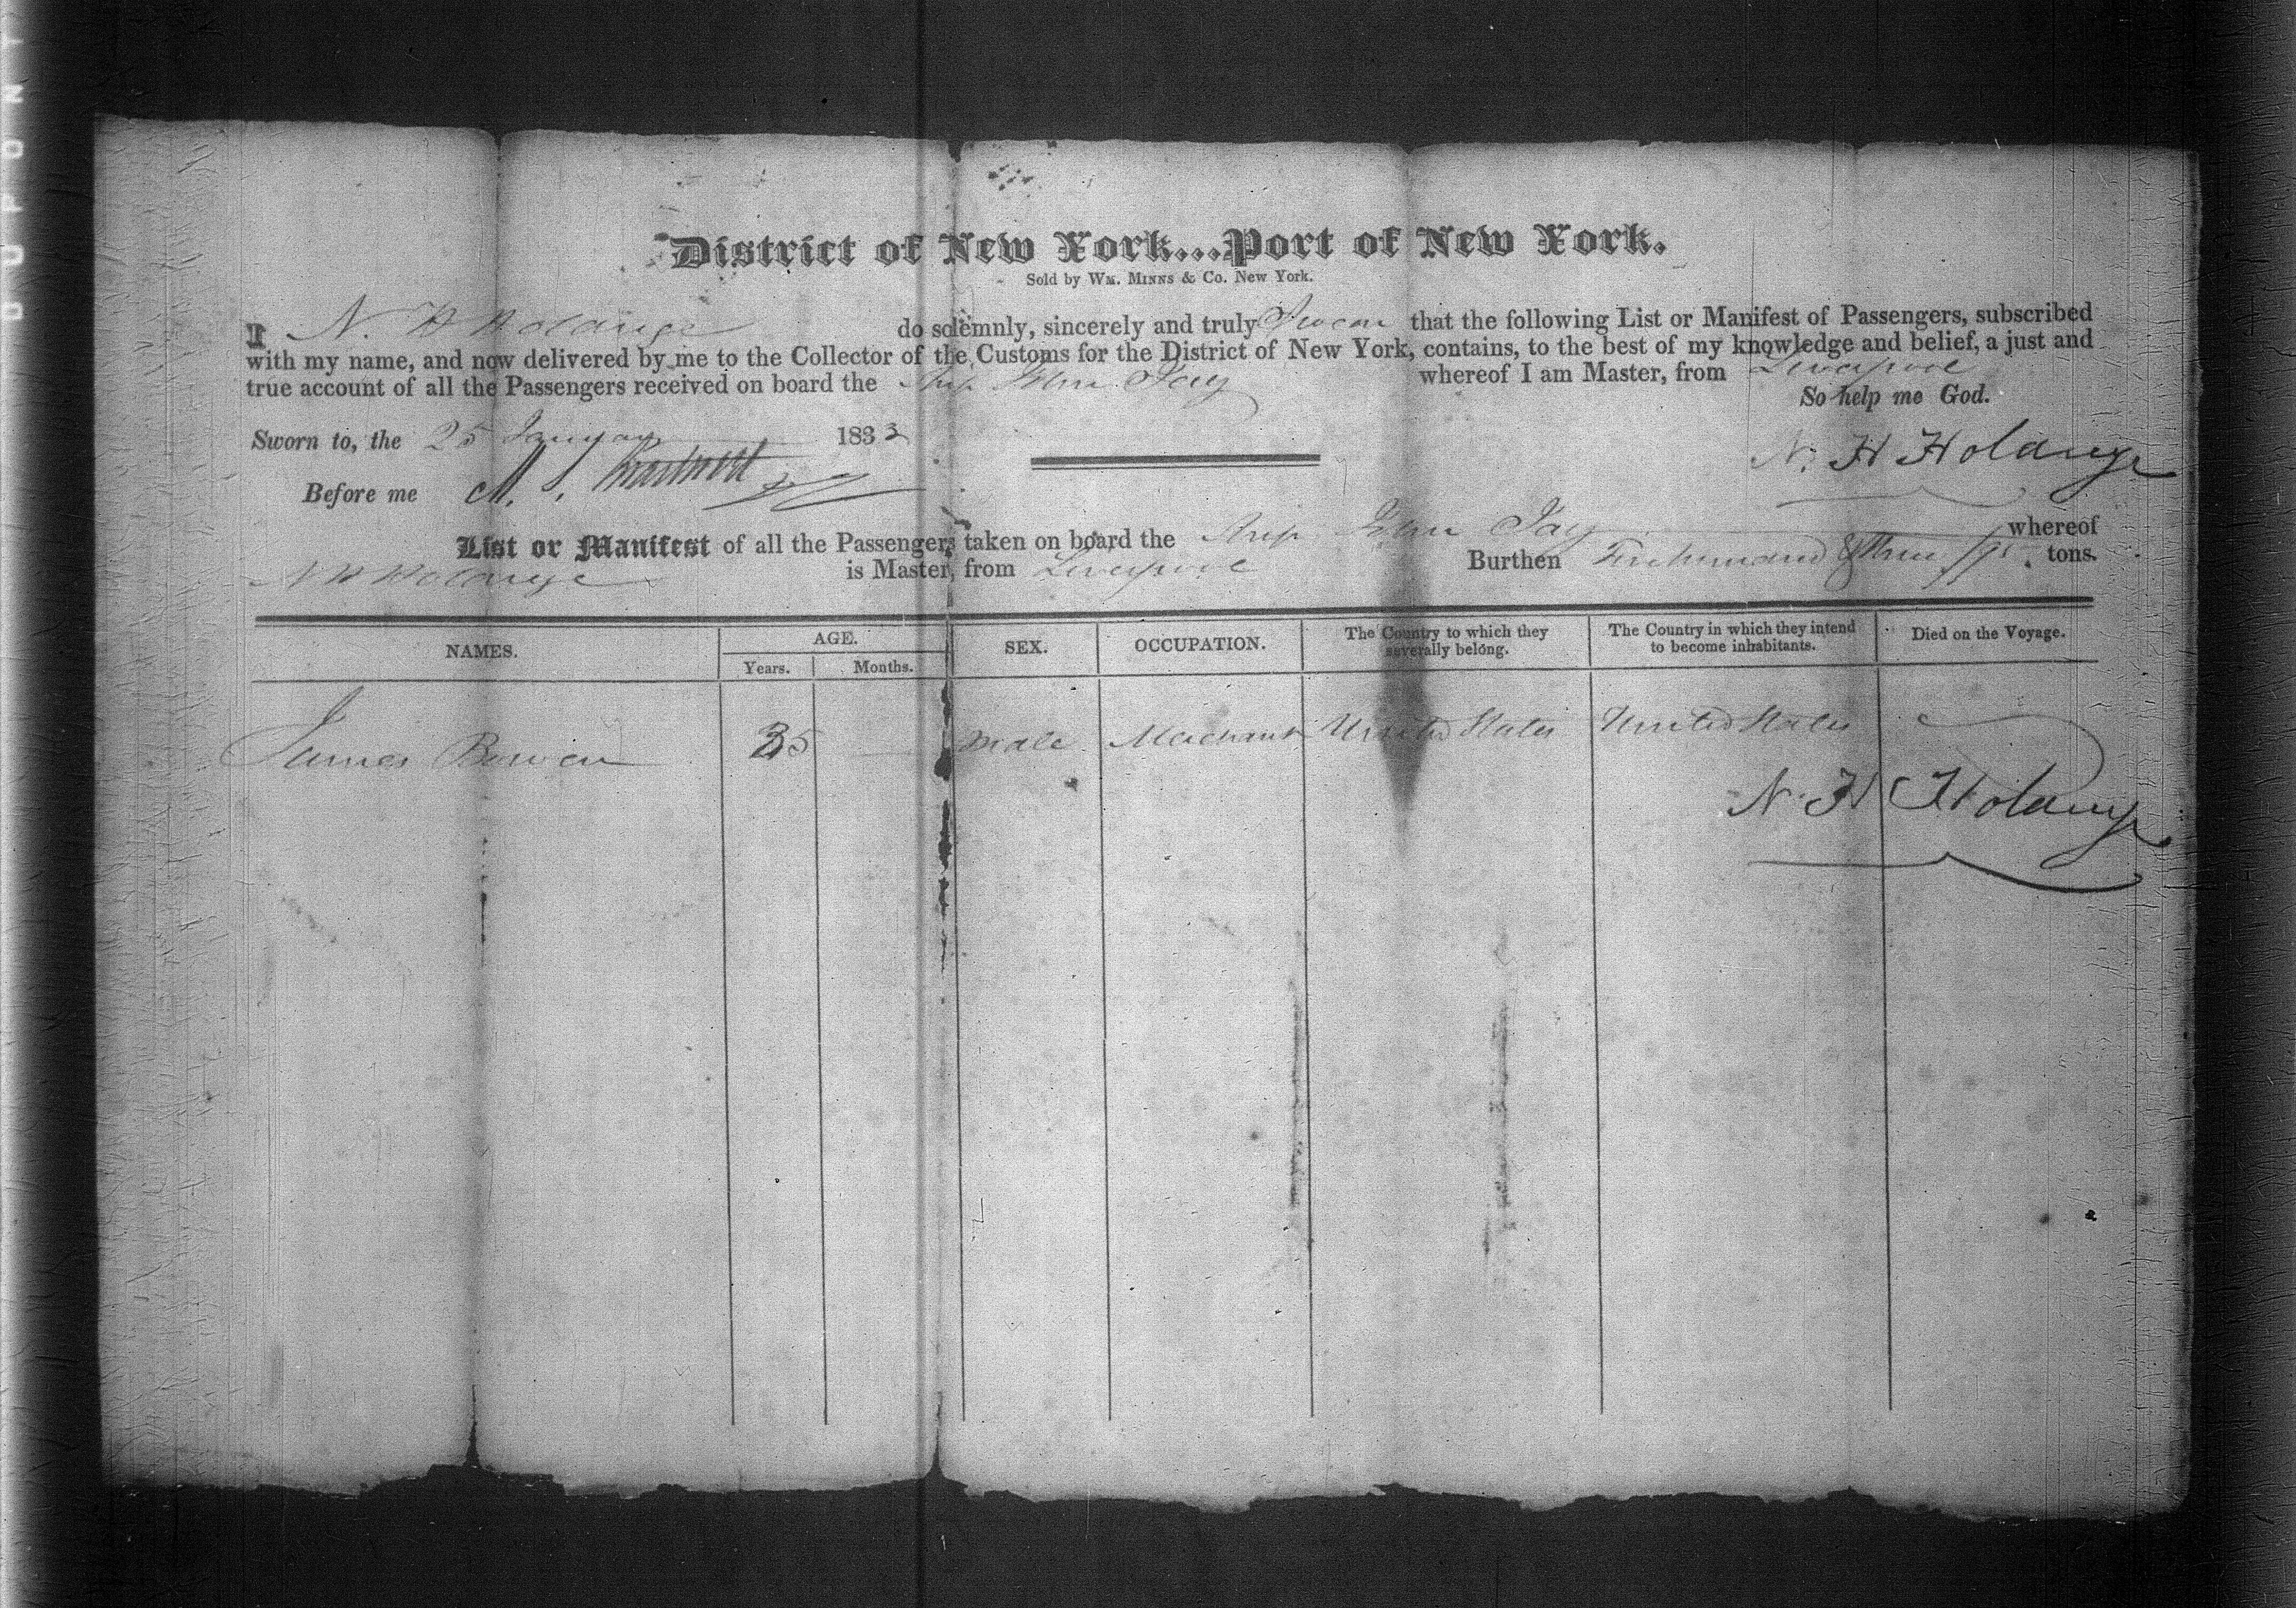 DUPONT
District of New York...Port of New York.
Sold by WM. MINNS & Co. New York.
I N. H Holdange do solemnly, sincerely and truly Swear that the following List or Manifest of Passengers, subscribed
with my name, and now delivered by me to the Collector of the Customs for the District of New York, contains, to the best of my knowledge and belief, a just and
true account of all the Passengers received on board the Ship John Jay whereof I am Master, from Liverpool
So help me God.
Sworn to, the 25 January 1833
N. H Holdange
Before me M. I.
List or Manifest of all the Passengers taken on board the Ship John Jay whereof
N H Holdange is Master, from Liverpool Burthen tons.
NAMES. AGE. SEX. OCCUPATION. The Country to which they severally belong. The Country in which they intend to become inhabitants. Died on the Voyage.
Years. Months.
James Bowen 35 Male Merchant United States United States
N. H Holdange